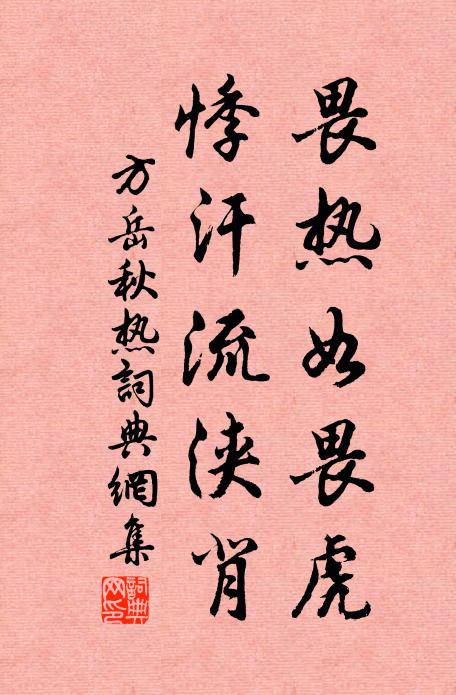 畏热如畏虎
悸汗流浃背
方岳秋热詞典網集
詞典
网印